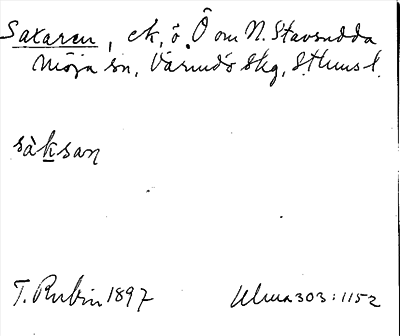 Saxaren, ek, ö. Ö om N. Stavsudda
Möja sn, Värmdö skg, Sthms l.
sàksan
T. Rubin 1897 Ulma 303:1152